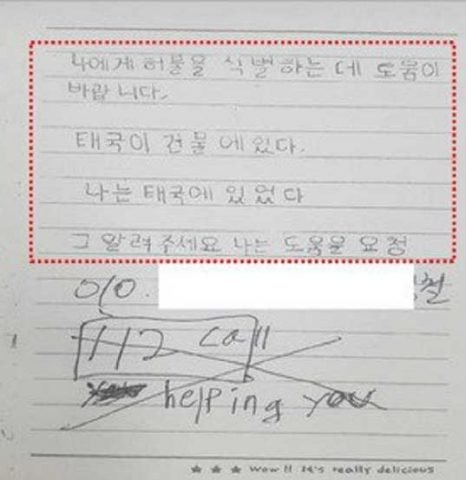 나에게 허물을 식별하는 데 도움이
바랍니다.
태국이 건물에있다.
나는태국에 있었다
그 알려주세요 나는 도움을 요청
010.
112 call
helping you
★ ★ ★ Wow!! It's really delicious